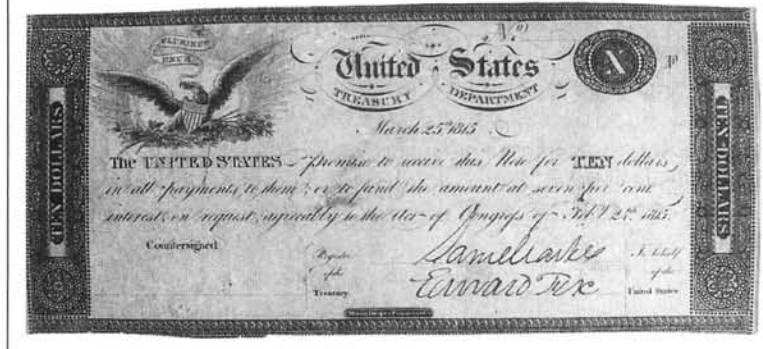 PLURIBUS
UNUM
No
United States
TREASURY DEPARTMENT
X
March 25th 1815
The UNITED STATES Promise to receive this Note for TEN dollars,
in all payments to them, or to fund the amount at seven per cent
interest, on request, agreeably to the Act of Congress of Feby 24th 1815.
TEN DOLLARS
TEN-DOLLARS
Countersigned
Register
of the
Treasury
In behalf
of the
United States
Edward Fox